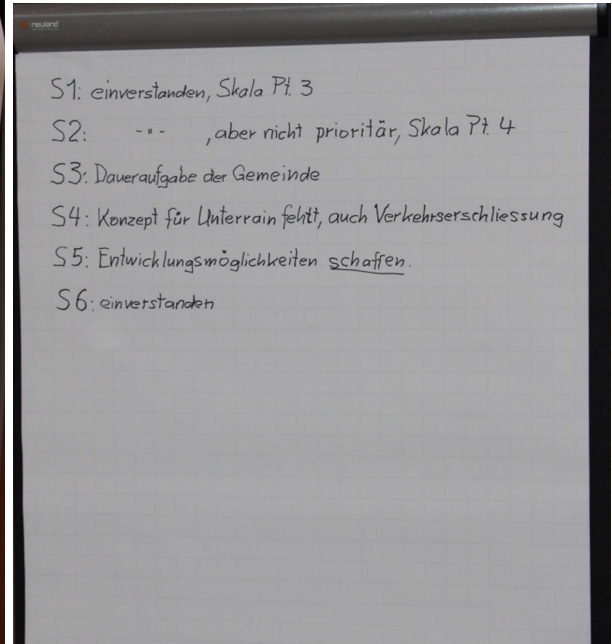 neuland
S1: einverstanden, Skala Pt. 3
S2: -"- , aber nicht prioritär, Skala Pt. 4
S3: Daueraufgabe der Gemeinde
S4: Konzept für Unterrain fehtt, auch Verkehrserschliessung
S5: Entwicklungsmöglichkeiten schaffen.
S6: einverstanden